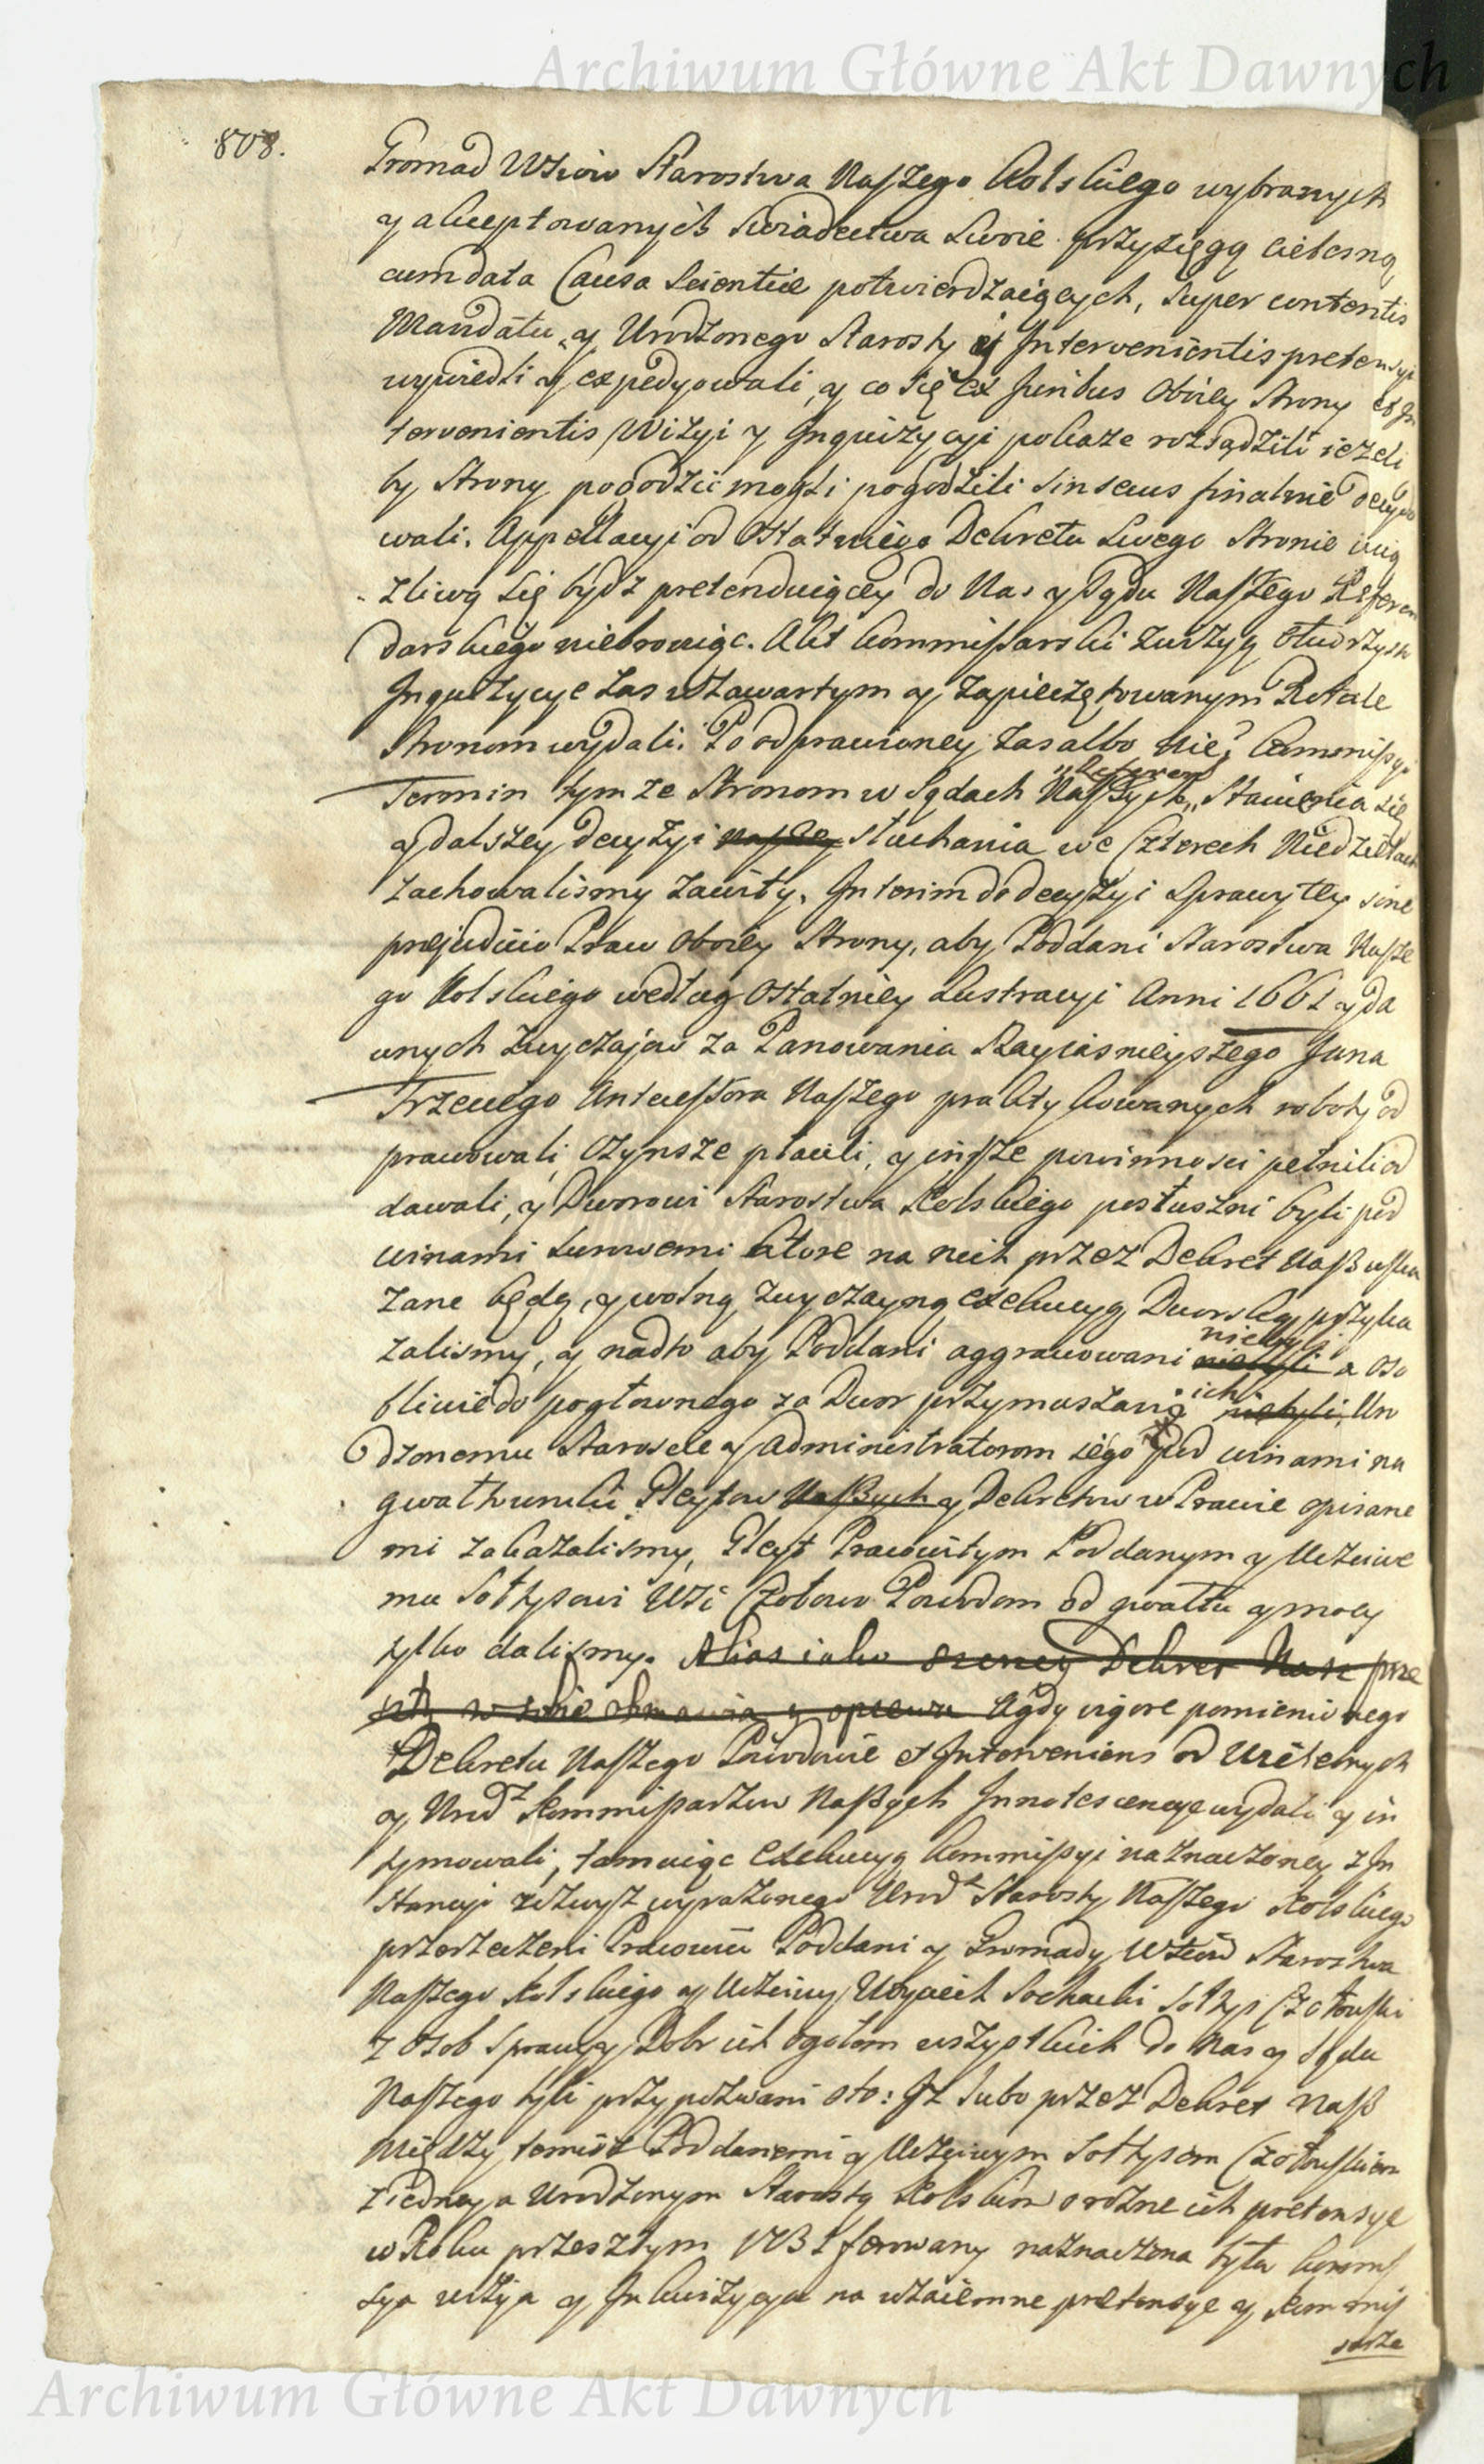 Archiwum Główne Akt Dawnych
808.
Gromad Wsiow Starostwa Naszego Kolskiego wybranych
y akceptowanych Swiadectwa Swoie przysięgą cielesną
cum data Causa Scientiæ potwierdzaiących, super contentis
Mandatu y Urodzonego Starosty y Intervenientis pretensyi
wywiedli y expedyowali, y co się ex Juribus oboiey Strony et In
tervenientis Wizyi y Inquizycyi pokaze rozsądzili iezeli
by Strony pogodzic mogli pogodzili sin secus finalnie decydo
wali. Appellacyi od Ostatniego Dekretu Swego Stronie ucią
zliwą się bydz pretenduiącey do Nas y Sądu Naszego Referen
darskiego niebroniąc. Akt Kommissarski zwizyą otworzysty
Inquizycye zas w zawartym y zapieczętowanym Rotule
Stronom wydali. Po odprawioney zas albo nie, Commissyi
Termin tymze Stronom w Sądach Naszych „Referen „ stawienia się
y dalszey decyzyi naszey słuchania we Czterech Niedzielach
zachowalismy zawity. Interim do decyzyi Sprawy tey sine
prejudicio Praw oboiey Strony, aby Poddani Starostwa Nasze
go Kolskiego według Ostatniey Lustracyi Anni 1661 y da
wnych zwyczajow za Panowania Nayiasnieyszego Jana
Trzeciego Antecessora Naszego praktykowanych roboty od
prawowali czynsze płacili, y insze powinnosci pełnili od
dawali, y Dworowi Starostwa Kolskiego posłuszni byli pod
winami surowemi ktore na nich przez Dekret Nasz wska
zane będą, y wolną zwyczayną exekucyą Dworską przyka
zalismy, y nadto aby Poddani aggrawowani niebyli niebyli a oso
bliwie do pogłownego za Dwor przymuszani ich niebyli, Uro
dzonemu Staroscie y Administratorom iego pod winami na
gwałtowniki Gleytow Naszych y Dekretow w Prawie opisane
mi zakazalismy, Gleyt Pracowitym Poddanym y Uczciwe
mu Sołtysowi Wsi Czołowo Powodom od gwałtu y mocy
tylko dalismy. Alias iako szerzey Dekret Nasz prze
w sobie obmawia y opiewa A gdy vigore pomienionego
Dekretu Naszego Powodowie et Interveniens od Wielebnych
y Urodz Kommissarzow Naszych Innotescencye wydali y in
tymowali, tamuiąc Exekucyą Kommissyi naznaczoney z In
stancyi zwyz wyrazonego Urodz Starosty Naszego Kolskiego
przerzeczeni Pracowici Poddani y Gromady Wsiow Starostwa
Naszego Kolskiego y Uczciwy Woyciech Sochacki Sołtys Czołowski
z osob sprawy y Dobr ich ogołem wszystkich do Nas y Sądu
Naszego byli przypozwani oto: Iz lubo przez Dekret Nasz
między temisz Poddanemi y Uczciwym Sołtysem Czołowskiem
z iedney a Urodzonym Starostą Kolskim o rozne ich pretensye
w Roku przeszłym 1731 ferowany naznaczona była Kommis
sya wizya y Inkwizycya na wzaiemne pretensye y Kommis
sarze
Archiwum Główne Akt Dawnych